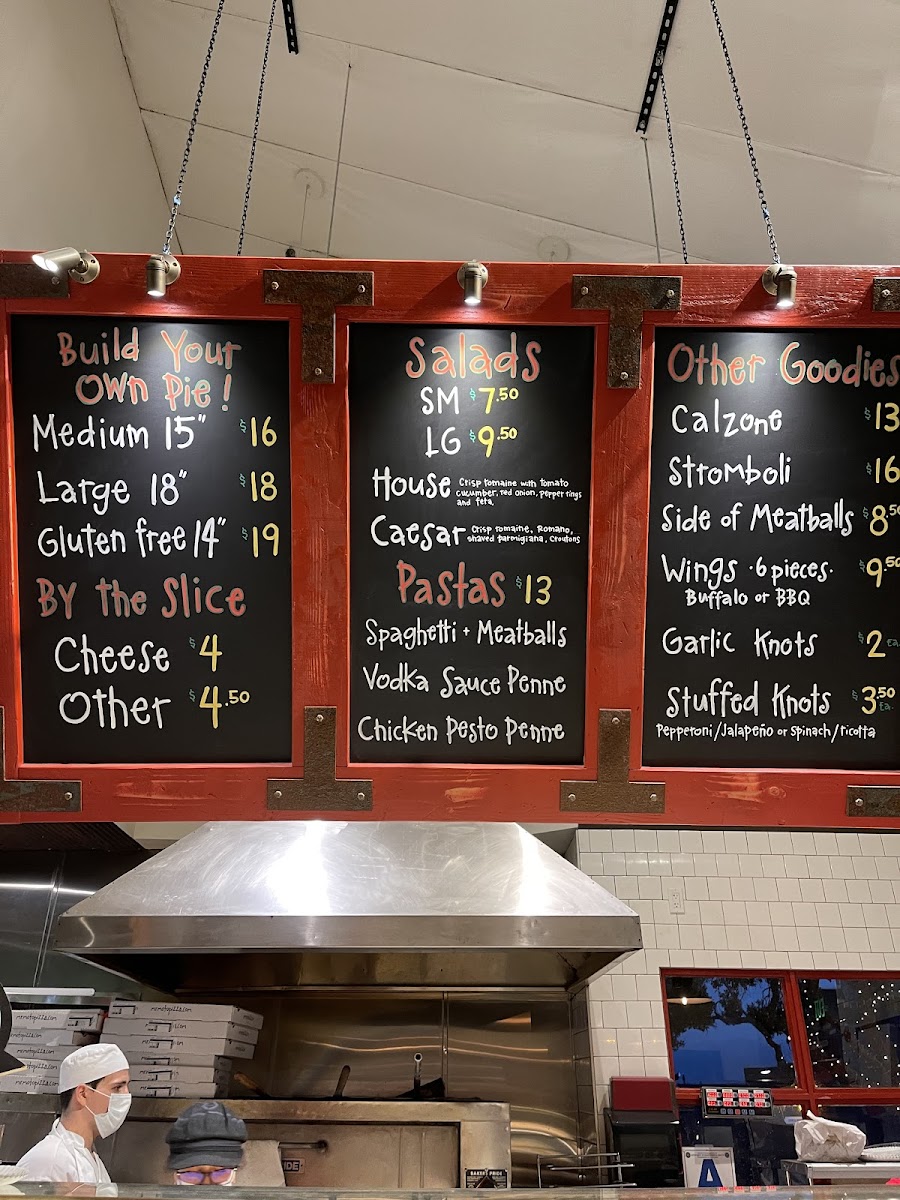 Build Your
Own Pie!
Medium 15" $16
Large 18" $18
Gluten free 14" $19
By the Slice
Cheese $4
Other $4.50
Salads
SM $7.50
LG $9.50
House Crisp romaine with tomato
cucumber, red onion, pepper rings
and feta.
Caesar Crisp romaine, Romano,
shaved parmigiana, croutons
Pastas $13
Spaghetti + Meatballs
Vodka Sauce Penne
Chicken Pesto Penne
Other Goodies
Calzone $13
Stromboli $16
Side of Meatballs $8.50
Wings ·6 pieces· $9.50
Buffalo or BBQ
Garlic Knots $2 ea.
Stuffed Knots $3.50 Ea.
Pepperoni/Jalapeño or spinach/ricotta
BAKERS PRIDE
A